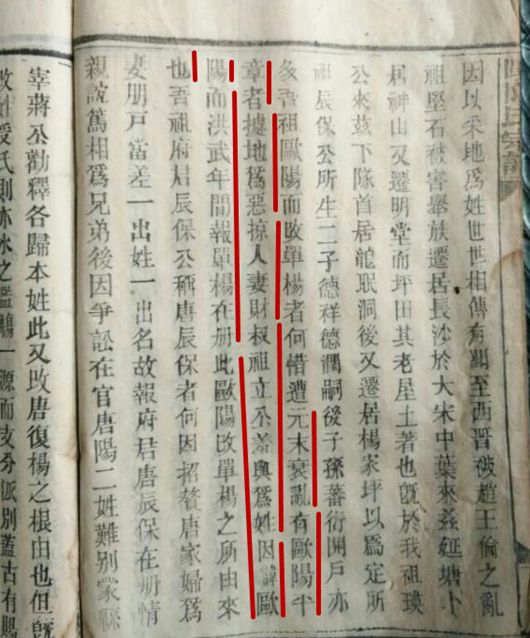 因以采地爲姓世世相傳有蹰至西晋被趙王倫之亂
祖堅石被害舉族遷居長沙於大宋中葉來兹姃塘卜
居神山又遷明堂而坪田其老屋土著也旣於我祖瑛
公來兹下隊首居龍眠洞後又遷居楊家坪以爲定所
祖辰保公所生二子德祥德潤嗣後子孫蕃衍開戶亦
多吾祖歐陽而改單楊者何惜遭元末衰亂有歐陽千
章者據地爲惡掠人妻財叔祖立公羞與爲姓因諱歐
陽而洪武年間報單楊在册此歐陽改單楊之所由來
也吾祖府君辰保公稱唐辰保者何因招贅唐家婦爲
妻朋戶當差一出姓一出名故報府君唐辰保在册情
親誼篤相爲兄弟後因爭訟在官唐陽二姓難別蒙縣
宰蔣公勸釋各歸本姓此又改唐復楊之根由也但旣
改姓受氏則亦水之濫觴一源而支分派別蓋古有賜